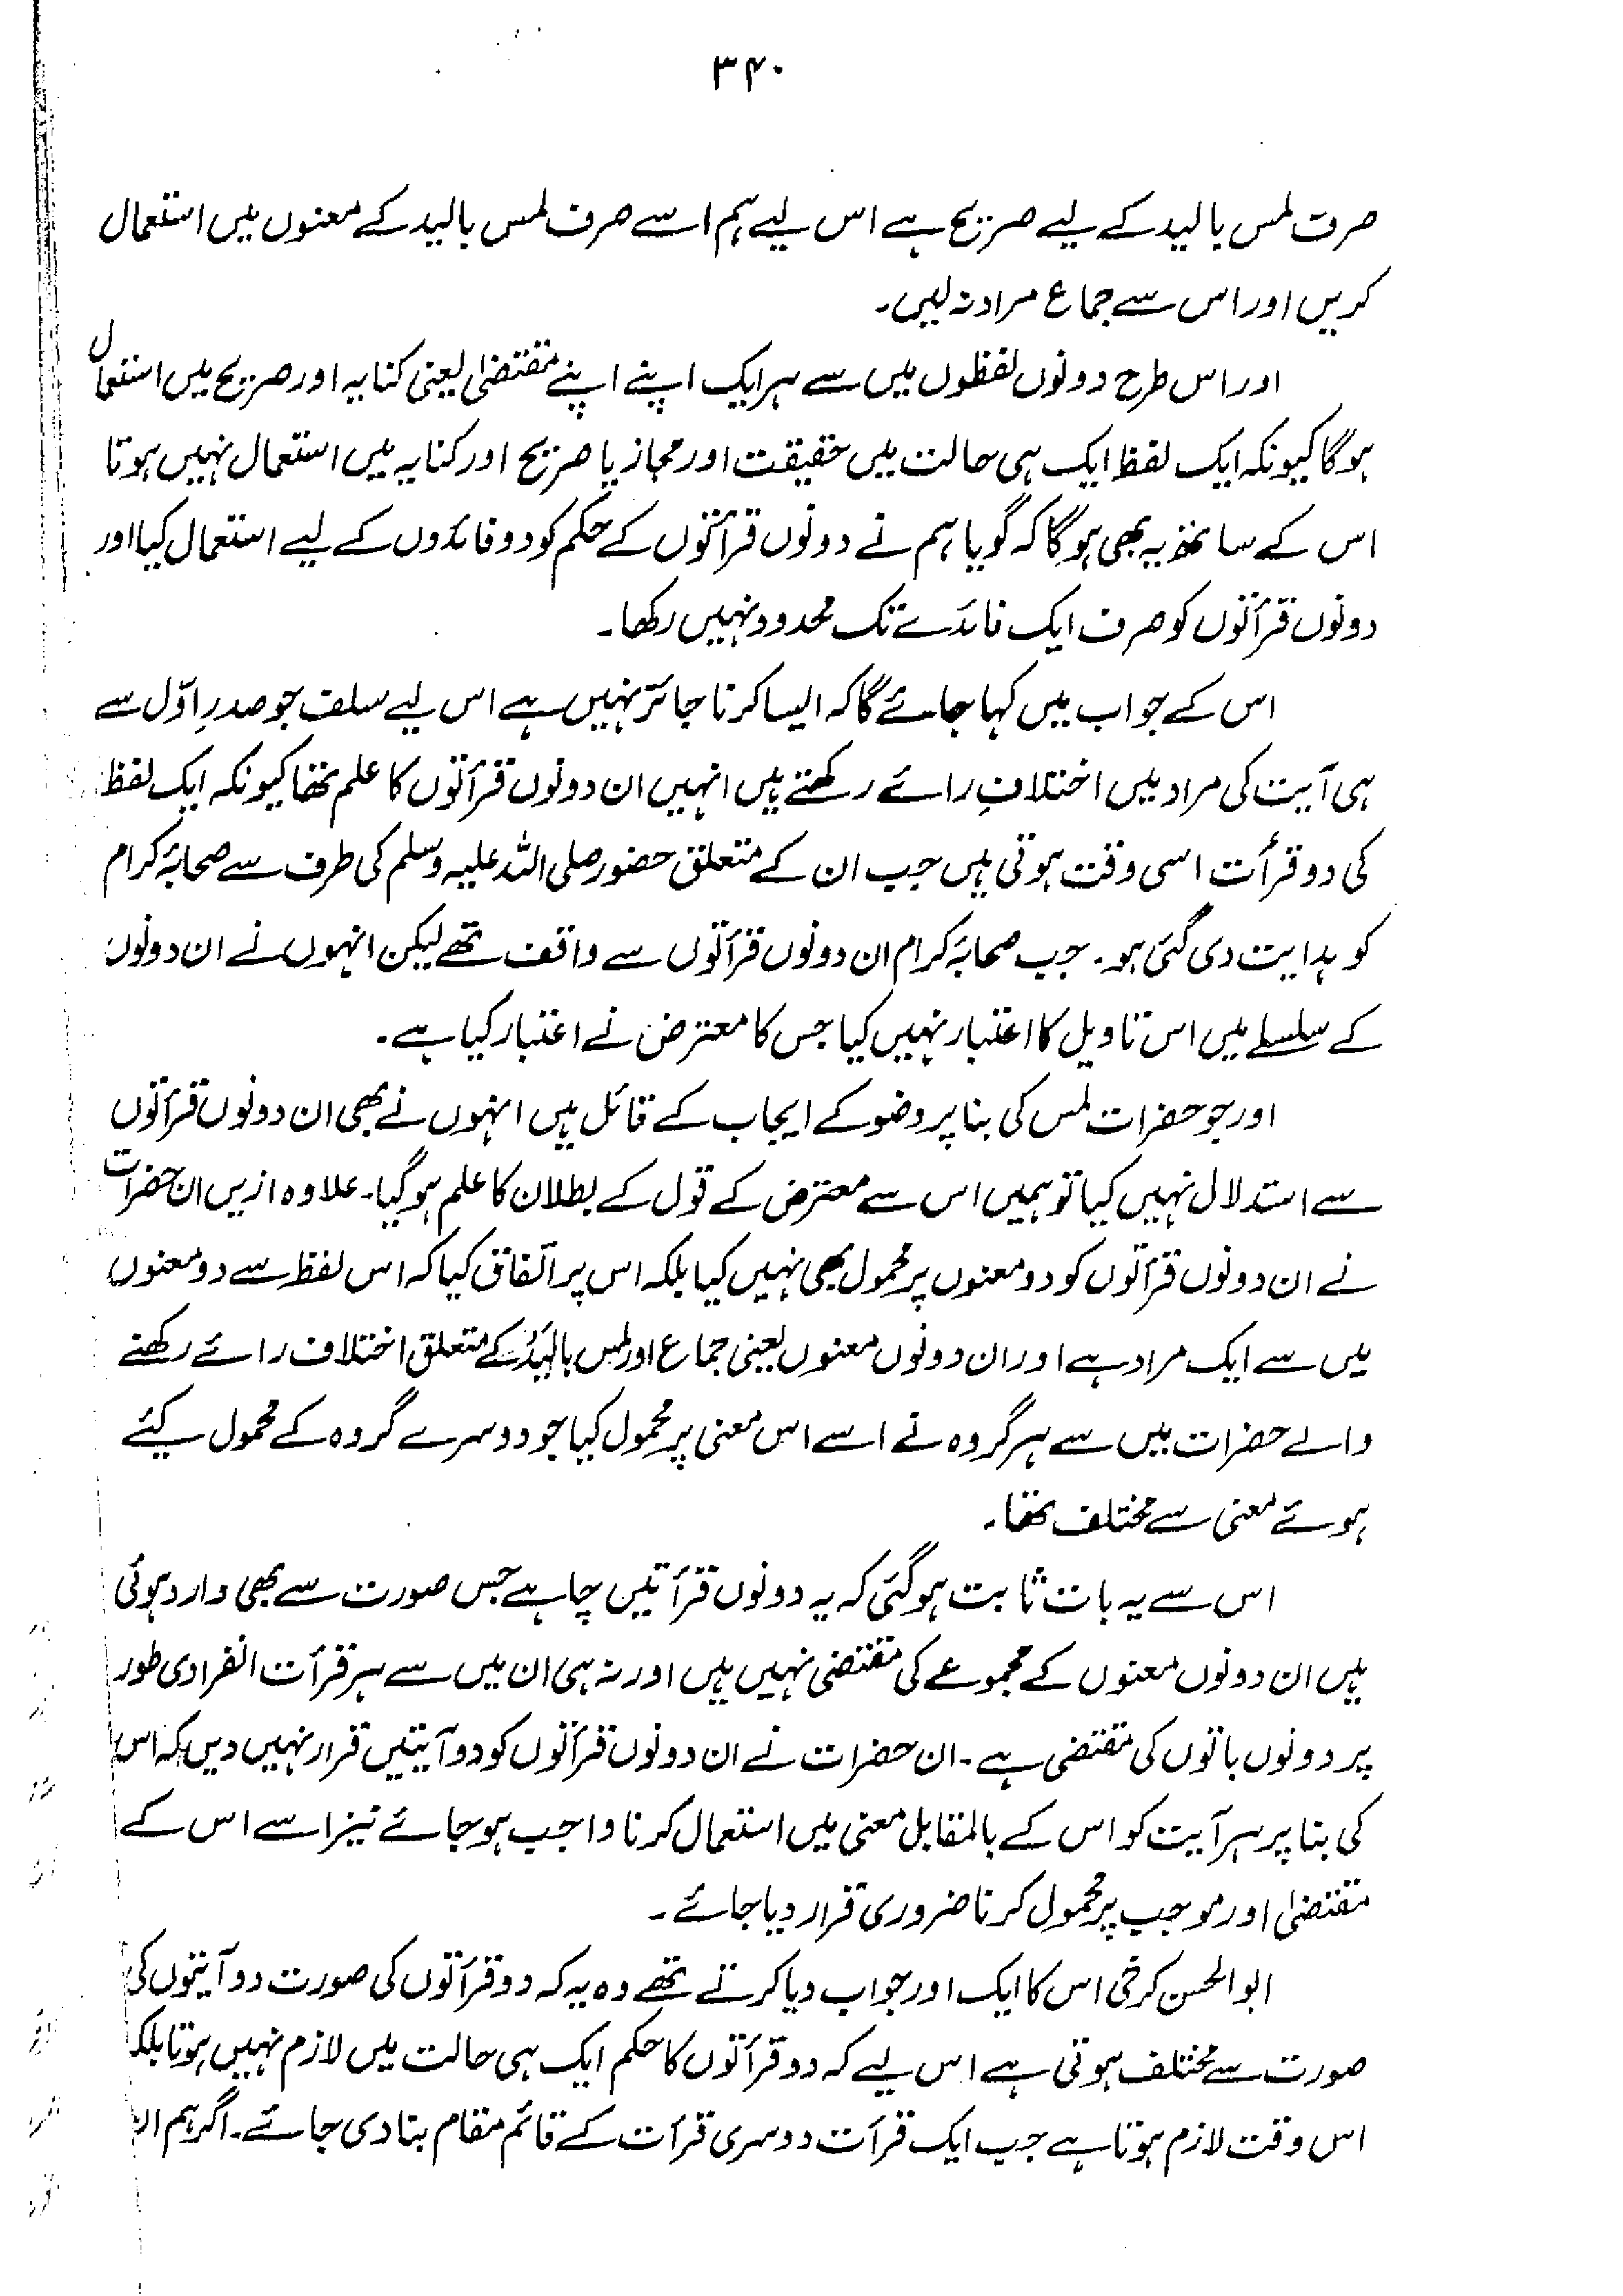 ۳۴۰
صرف لمس بالید کے لیے صریح ہے اس لیے ہم اسے صرف لمس بالید کے معنوں میں استعمال
کریں اور اس سے جماع مراد نہ لیں۔
اور اس طرح دونوں لفظوں میں سے ہر ایک اپنے اپنے مقتضیٰ یعنی کنایہ اور صریح میں استعمال
ہوگا کیونکہ ایک لفظ ایک ہی حالت میں حقیقت اور مجاز یا صریح اور کنایہ میں استعمال نہیں ہوتا
اس کے ساتھ یہ بھی ہوگا کہ گویا ہم نے دونوں قرأتوں کے حکم کو دو فائدوں کے لیے استعمال کیا اور
دونوں قرأتوں کو صرف ایک فائدے تک محدود نہیں رکھا۔
اس کے جواب میں کہا جائے گا کہ ایسا کرنا جائز نہیں ہے اس لیے سلف جو صدرِ اوّل سے
ہی آیت کی مراد میں اختلافِ رائے رکھتے ہیں انہیں ان دونوں قرأتوں کا علم تھا کیونکہ ایک لفظ
کی دو قرأت اسی وقت ہوتی ہیں جب ان کے متعلق حضور صلی اللہ علیہ وسلم کی طرف سے صحابۂ کرام
کو ہدایت دی گئی ہو۔ جب صحابۂ کرام ان دونوں قرأتوں سے واقف تھے لیکن انہوں نے ان دونوں
کے سلسلے میں اس تاویل کا اعتبار نہیں کیا جس کا معترض نے اعتبار کیا ہے۔
اور جو حضرات لمس کی بنا پر وضو کے ایجاب کے قائل ہیں انہوں نے بھی ان دونوں قرأتوں
سے استدلال نہیں کیا تو ہمیں اس سے معترض کے قول کے بطلان کا علم ہوگیا۔ علاوہ ازیں ان حضرات
نے ان دونوں قرأتوں کو دو معنوں پر محمول بھی نہیں کیا بلکہ اس پر اتفاق کیا کہ اس لفظ سے دو معنوں
میں سے ایک مراد ہے اور ان دونوں معنوں یعنی جماع اور لمس بالیَد کے متعلق اختلاف رائے رکھنے
والے حضرات میں سے ہر گروہ نے اسے اس معنی پر محمول کیا جو دوسرے گروہ کے محمول کیئے
ہوئے معنی سے مختلف تھا۔
اس سے یہ بات ثابت ہوگئی کہ یہ دونوں قرأتیں چاہے جس صورت سے بھی وارد ہوئی
ہیں ان دونوں معنوں کے مجموعے کی مقتضی نہیں ہیں اور نہ ہی ان میں سے ہر قرأت انفرادی طور
پر دونوں باتوں کی مقتضی ہے۔ ان حضرات نے ان دونوں قرأتوں کو دو آیتیں قرار نہیں دیں کہ اس
کی بنا پر ہر آیت کو اس کے بالمقابل معنی میں استعمال کرنا واجب ہو جائے نیز اسے اس کے
مقتضیٰ اور موجب پر محمول کرنا ضروری قرار دیا جائے۔
ابوالحسن کرخی اس کا ایک اور جواب دیا کرتے تھے وہ یہ کہ دو قرأتوں کی صورت دو آیتوں کی
صورت سے مختلف ہوتی ہے اس لیے کہ دو قرأتوں کا حکم ایک ہی حالت میں لازم نہیں ہوتا بلکہ
اس وقت لازم ہوتا ہے جب ایک قرأت دوسری قرأت کے قائم مقام بنا دی جائے۔ اگر ہم